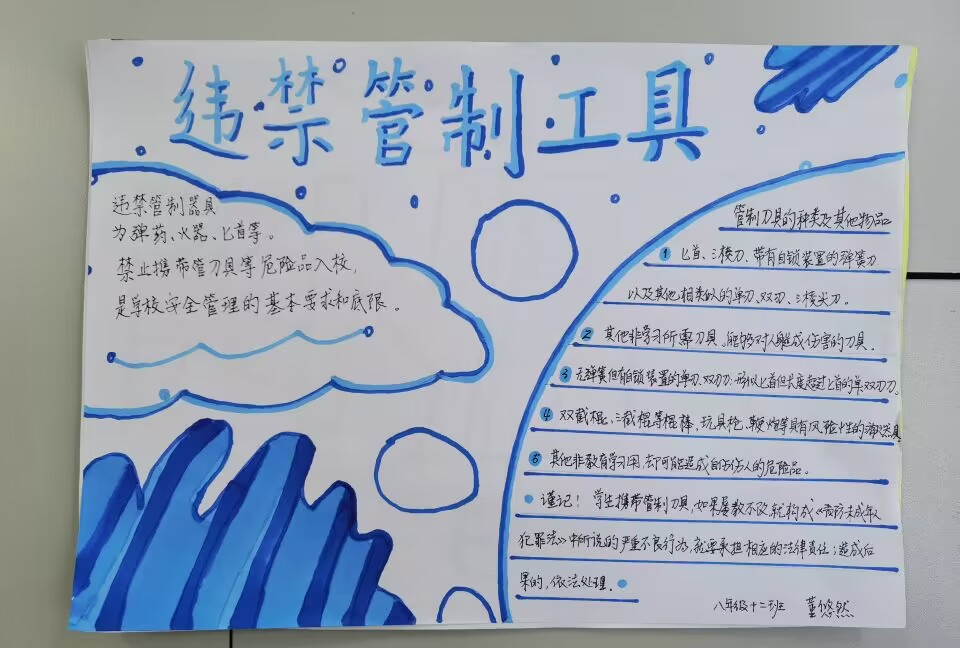 违禁管制工具
违禁管制器具
为弹药、火器、匕首等。
禁止携带管刀具等危险品入校,
是学校安全管理的基本要求和底限。
管制刀具的种类及其他物品
1 匕首、三棱刀、带有自锁装置的弹簧刀
以及其他相类似的单刃、双刃、三棱尖刀。
2 其他非学习所需刀具。能够对人造成伤害的刀具。
3 无弹簧但有自锁装置的单刃、双刃刀;形似匕首但长度超过匕首的单双刃刀。
4 双截棍、三截棍等棍棒,玩具枪、鞭炮等具有风险性的器具
5 其他非教育学习用,却可能造成自伤伤人的危险品。
谨记!学生携带管制刀具,如果屡教不改,就构成《预防未成年人
犯罪法》中所说的严重不良行为,就要承担相应的法律责任;造成后
果的,依法处理。
八年级十二班 董悠然